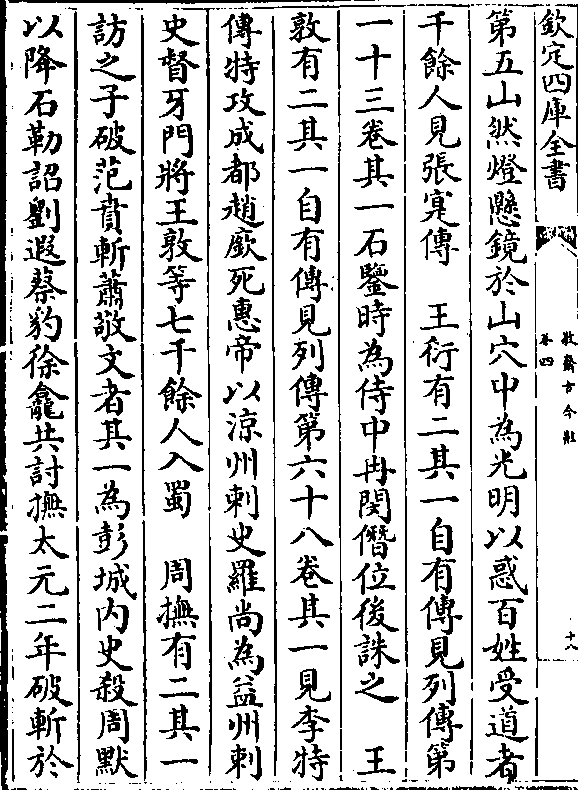 欽定四庫全書
敬齋古今黈
卷四
十八
第五山然燈懸鏡於山穴中為光明以惑百姓受道者
千餘人見張寔傳　王衍有二其一自有傳見列傳第
一十三卷其一石鑒時為侍中冉閔僭位後誅之　王
敦有二其一自有傳見列傳第六十八卷其一見李特
傳特攻成都趙廞死惠帝以涼州刺史羅尚為益州刺
史督牙門將王敦等七千餘人入蜀　周撫有二其一
訪之子破范賁斬蕭敬文者其一為彭城内史殺周默
以降石勒詔劉遐蔡豹徐龕共討撫太元二年破斬於